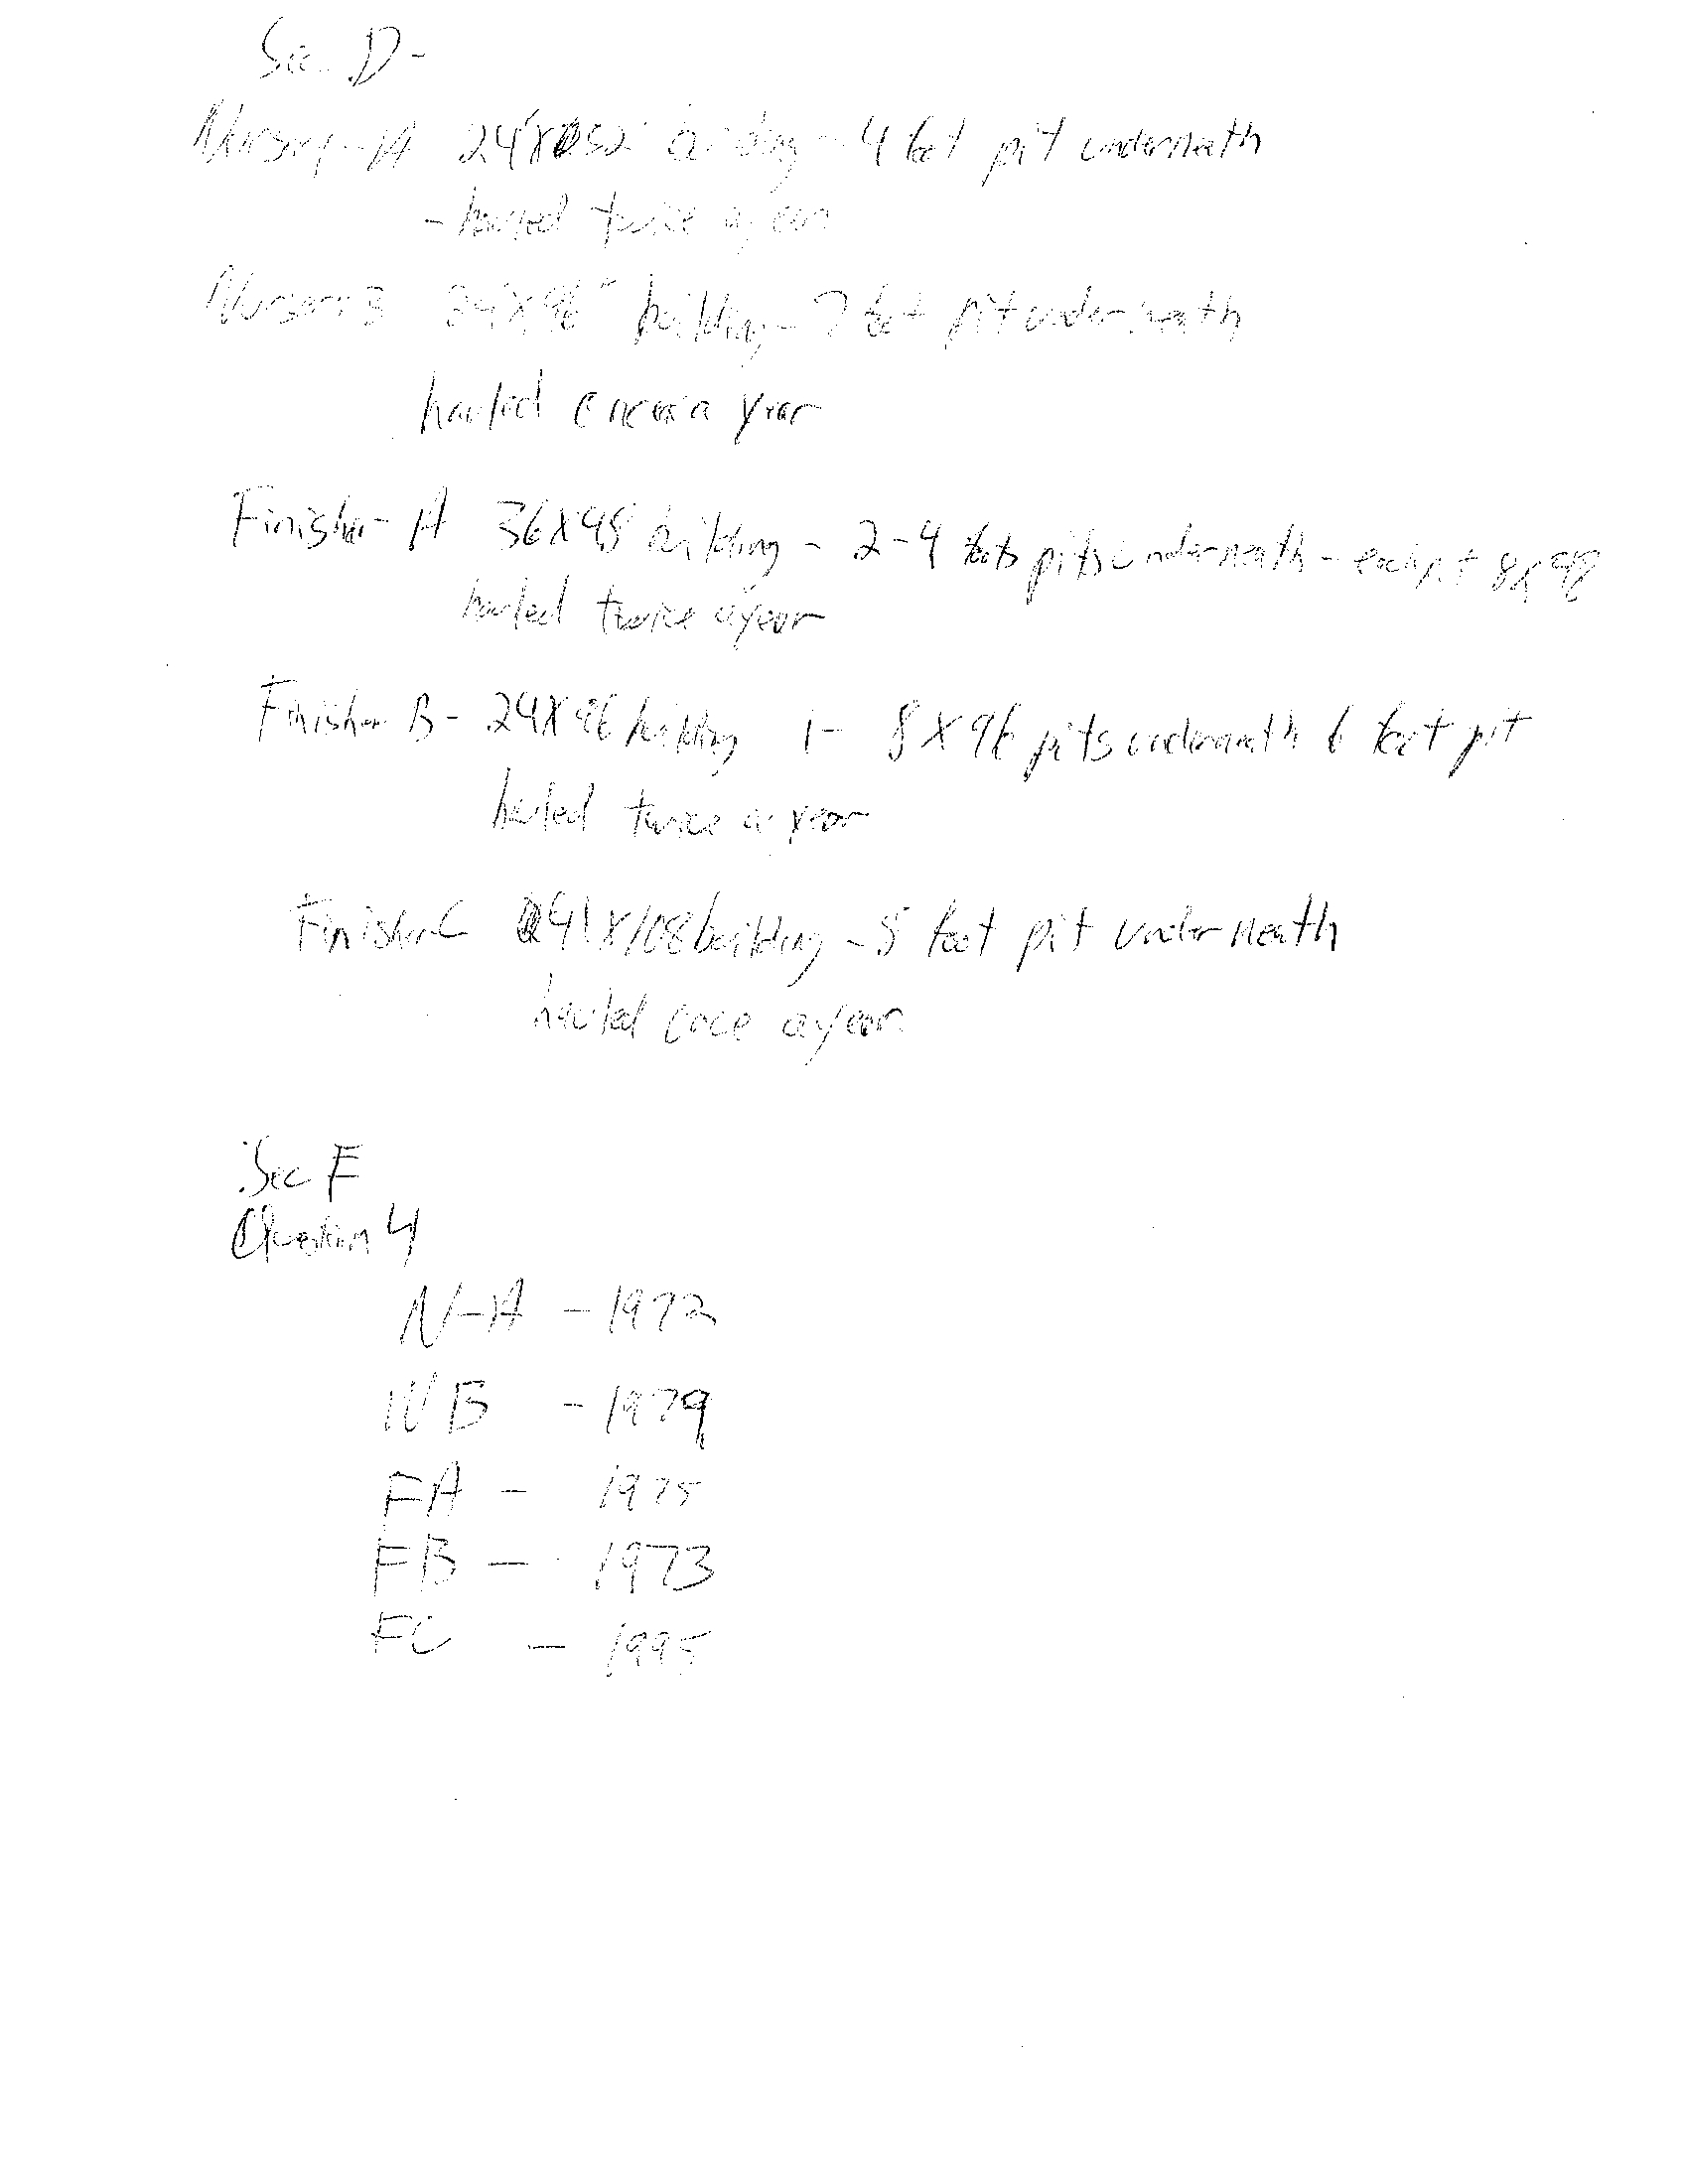 Sec. D-
Nursery-A 24'X 52' building - 4 foot pit underneath
- hauled twice a year
Nursery B 24'X96' building - 7 foot pit underneath
hauled once a year
Finisher-A 36X98 building - 2-4 foots pits underneath - each pit 8x98
hauled twice a year
Finisher B- 24X96 building 1- 8X96 pits underneath 6 foot pit
hauled twice a year
Finisher C 41X108 building - 8 foot pit underneath
hauled once a year
Sec F
Question 4
N-A - 1972
NB - 1979
FA - 1975
FB - 1973
FC - 1995